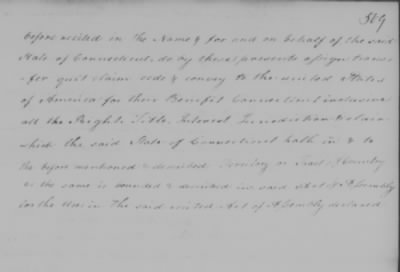 509
before recited in the Name & for and on behalf of the said
State of Connecticut do by these presents assign trans
-fer quit claim cede & convey to the united States
of America for their Benefit Connecticut inclusive
all the Right, Title, Interest Jurisdiction & claim
which the said State of Connecticut hath in & to
the before mentioned & described Territory or Tract of Country
as the same is bounded & described in said Act of Assembly
for the Uses in the said recited Act of Assembly declared